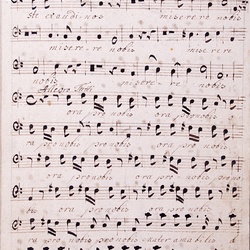 ste exaudi nos miserere nobis
miserere nobis miserere
nobis miserere nobis
Allegro
ora pro nobis ora pro nobis
ra pro nobis ora pro nobis ora pro
nobis ora pro nobis ora pro
nobis ora pro nobis ora pro
nobis ora pro nobis mater amabilis